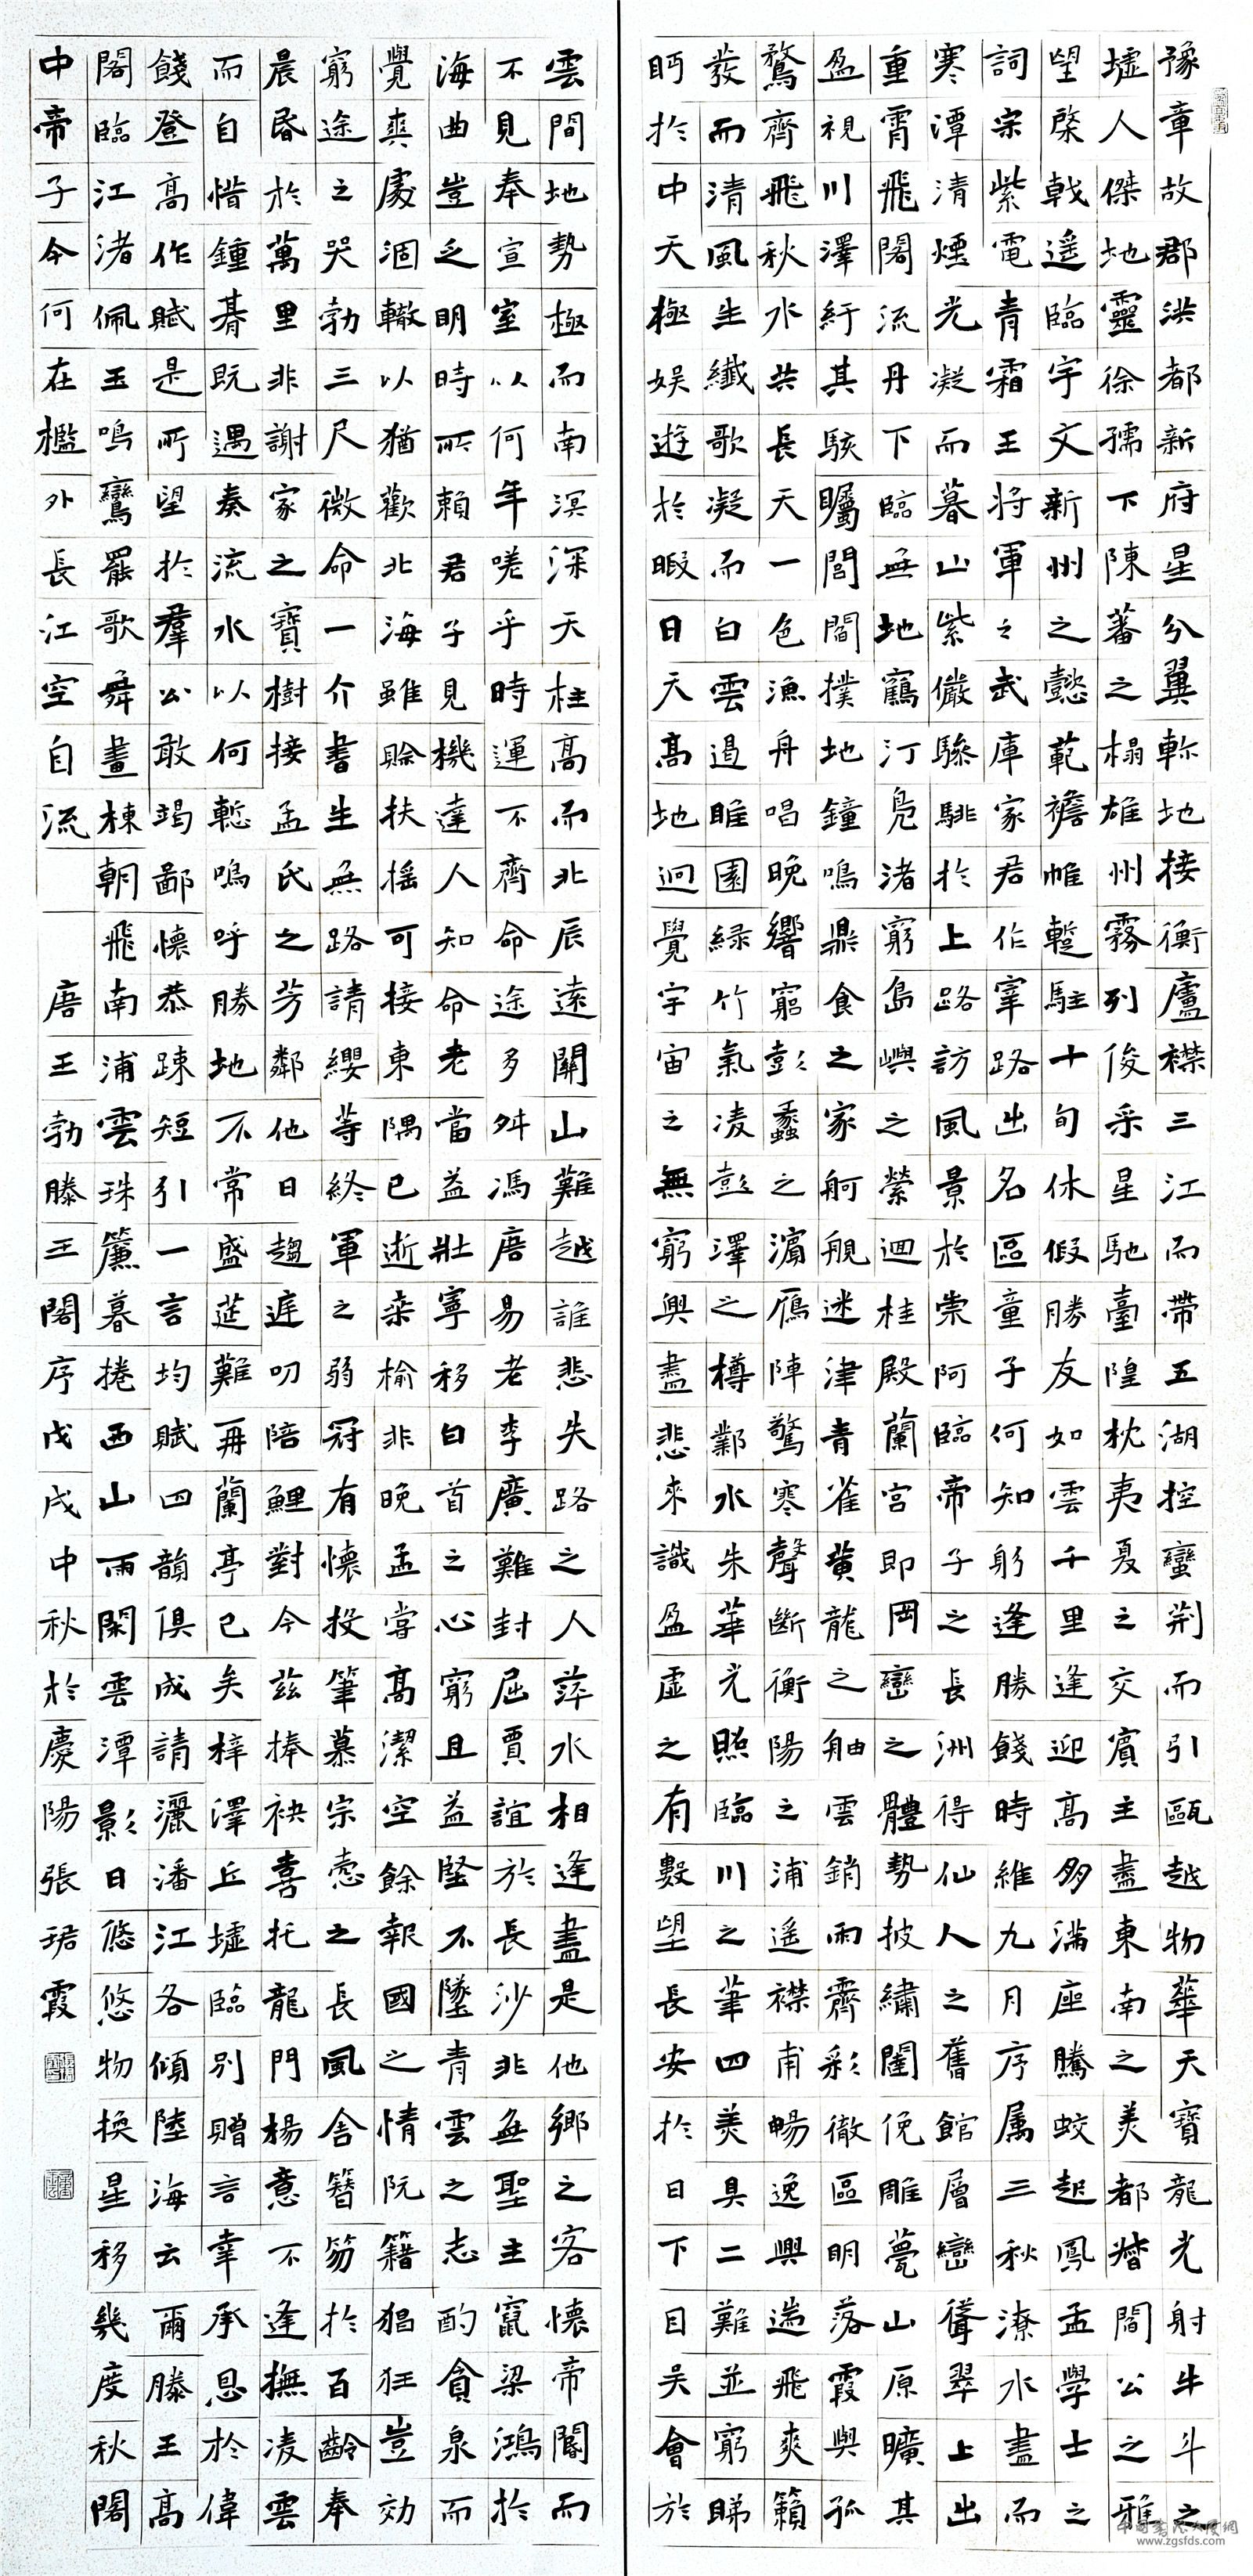 豫章故郡洪都新府星分翼軫地接衡廬襟三江而帶五湖控蠻荊而引甌越物華天寶龍光射牛斗之
墟人傑地靈徐孺下陳蕃之榻雄州霧列俊采星馳臺隍枕夷夏之交賓主盡東南之美都督閻公之雅
望棨戟遙臨宇文新州之懿範襜帷暫駐十旬休假勝友如雲千里逢迎高朋滿座騰蛟起鳳孟學士之
詞宗紫電青霜王將軍之武庫家君作宰路出名區童子何知躬逢勝餞時維九月序屬三秋潦水盡而
寒潭清煙光凝而暮山紫儼驂騑於上路訪風景於崇阿臨帝子之長洲得仙人之舊館層巒聳翠上出
重霄飛閣流丹下臨無地鶴汀鳧渚窮島嶼之縈迴桂殿蘭宮即岡巒之體勢披繡闥俛雕甍山原曠其
盈視川澤紆其駭矚閭閻撲地鐘鳴鼎食之家舸艦迷津青雀黃龍之舳雲銷雨霽彩徹區明落霞與孤
鶩齊飛秋水共長天一色漁舟唱晚響窮彭蠡之濱雁陣驚寒聲斷衡陽之浦遙襟甫暢逸興遄飛爽籟
發而清風生纖歌凝而白雲遏睢園綠竹氣凌彭澤之樽鄴水朱華光照臨川之筆四美具二難並窮睇
眄於中天極娛遊於暇日天高地迥覺宇宙之無窮興盡悲來識盈虛之有數望長安於日下目吳會於
雲間地勢極而南溟深天柱高而北辰遠關山難越誰悲失路之人萍水相逢盡是他鄉之客懷帝閽而
不見奉宣室以何年嗟乎時運不齊命途多舛馮唐易老李廣難封屈賈誼於長沙非無聖主竄梁鴻於
海曲豈乏明時所賴君子見機達人知命老當益壯寧移白首之心窮且益堅不墜青雲之志酌貪泉而
覺爽處涸轍以猶歡北海雖賒扶搖可接東隅已逝桑榆非晚孟嘗高潔空餘報國之情阮籍猖狂豈效
窮途之哭勃三尺微命一介書生無路請纓等終軍之弱冠有懷投筆慕宗愨之長風舍簪笏於百齡奉
晨昏於萬里非謝家之寶樹接孟氏之芳鄰他日趨庭叨陪鯉對今茲捧袂喜托龍門楊意不逢撫凌雲
而自惜鍾期既遇奏流水以何慙嗚呼勝地不常盛筵難再蘭亭已矣梓澤丘墟臨別贈言幸承恩於偉
餞登高作賦是所望於羣公敢竭鄙懷恭疎短引一言均賦四韻俱成請灑潘江各傾陸海云爾滕王高
閣臨江渚佩玉鳴鸞罷歌舞畫棟朝飛南浦雲珠簾暮捲西山雨閑雲潭影日悠悠物換星移幾度秋閣
中帝子今何在檻外長江空自流 唐王勃滕王閣序戊戌中秋於慶陽張珺霞
www.zgsfds.com